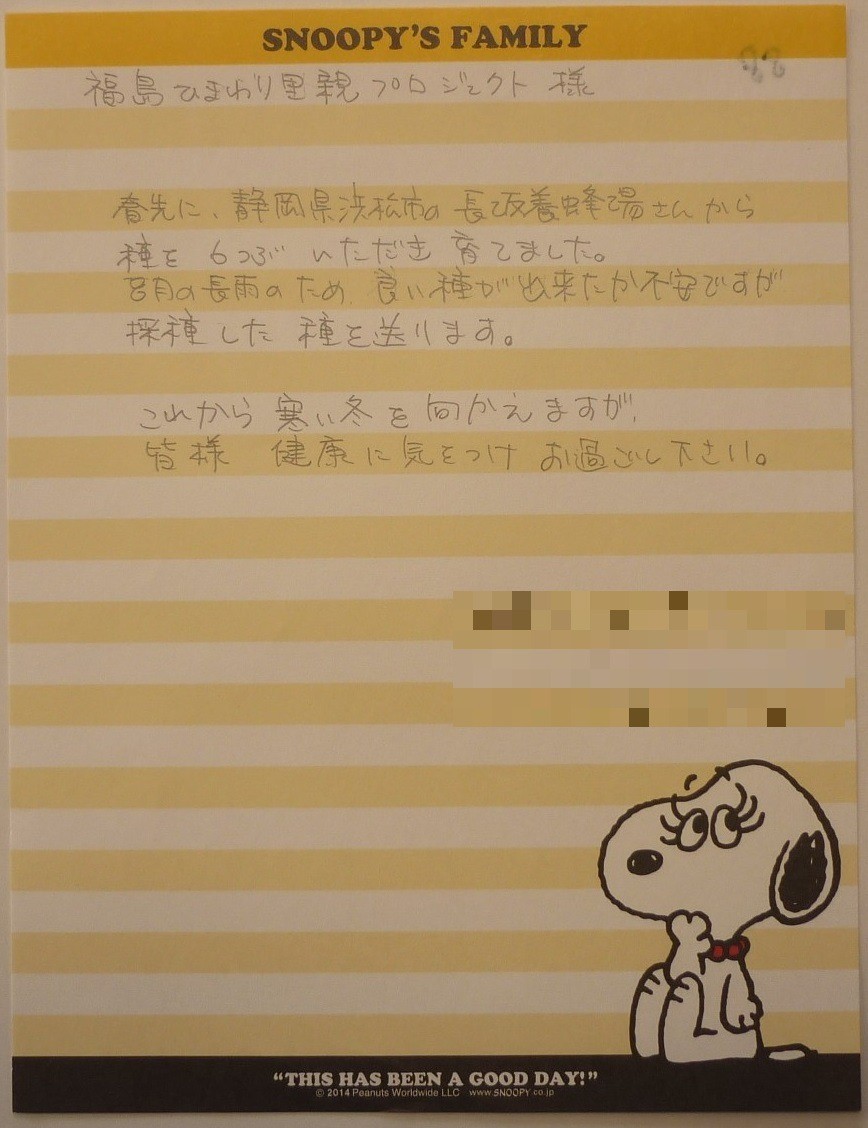 SNOOPY'S FAMILY
福島ひまわり里親プロジェクト 様
春先に、静岡県浜松市の 長坂養蜂場さんから
種を 6つぶ いただき 育てました。
8月の長雨のため、良い種が出来たか不安ですが
採種した 種を送ります。
これから 寒い冬を向かえますが、
皆様 健康に気をつけ お過ごし下さい。
"THIS HAS BEEN A GOOD DAY!"
© 2014 Peanuts Worldwide LLC www.SNOOPY.co.jp